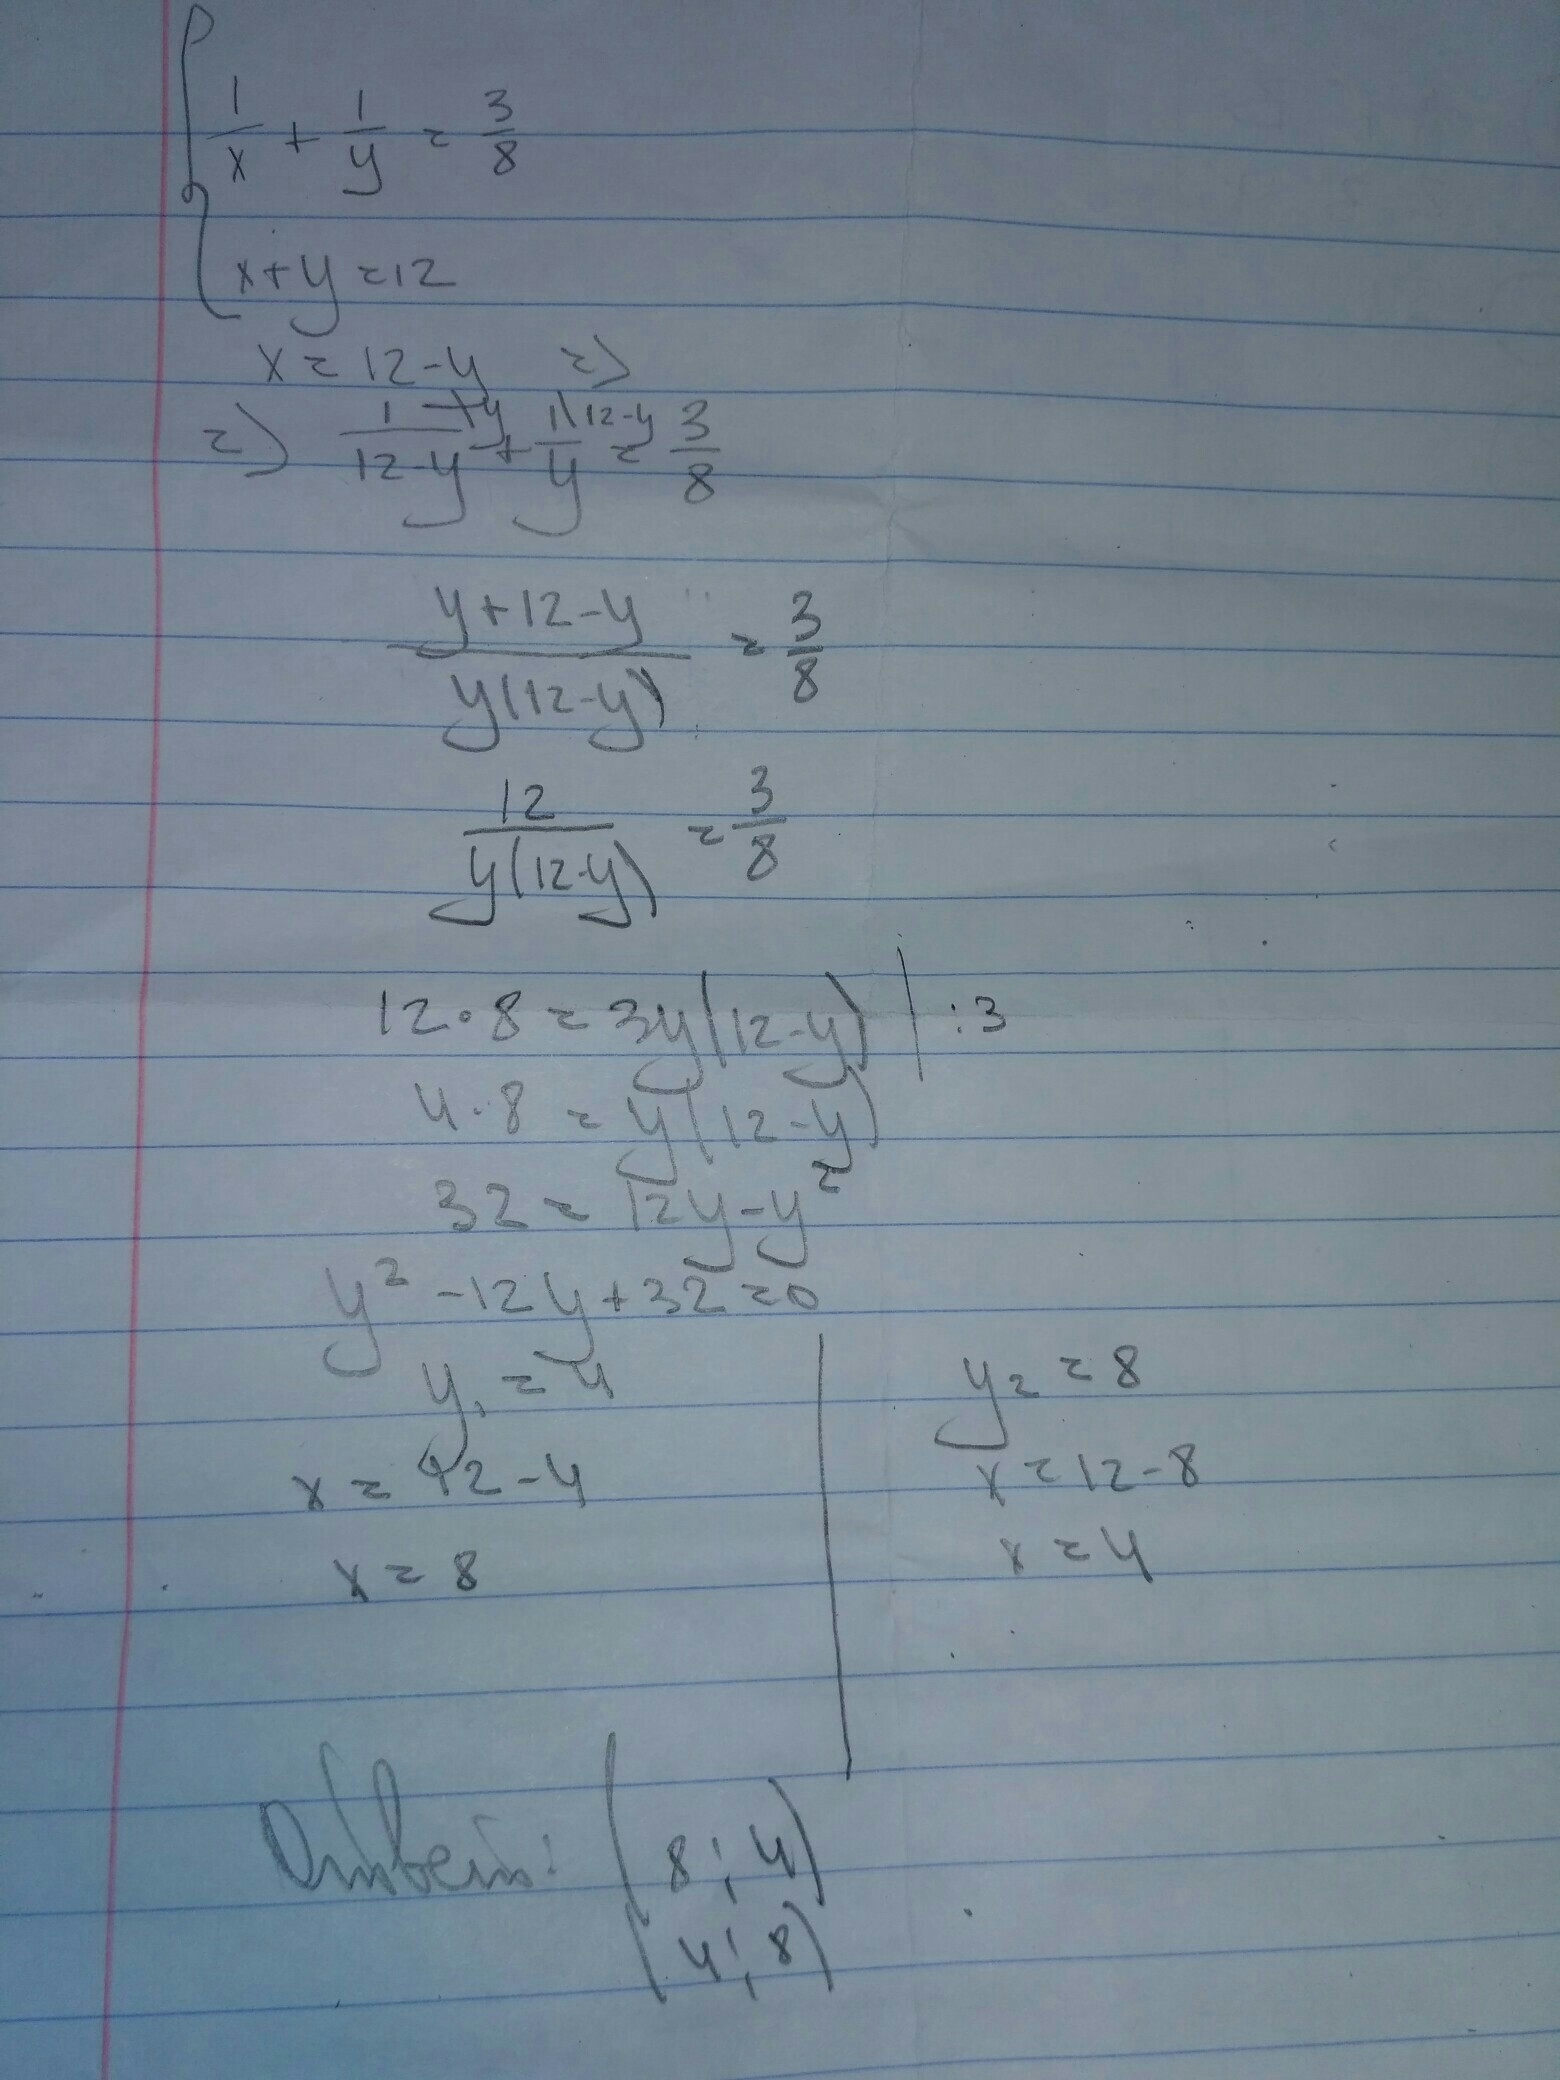 1/x + 1/y = 3/8
x+y=12
x=12-y =>
=> 1\y/12-y + 1\12-y/y = 3/8
y+12-y/y(12-y) = 3/8
12/y(12-y) = 3/8
12·8=3y(12-y) | :3
4·8=y(12-y)
32=12y-y²
y²-12y+32=0
y₁=4
x=12-4
x=8
y₂=8
x=12-8
x=4
Ответ: (8;4)
(4;8)